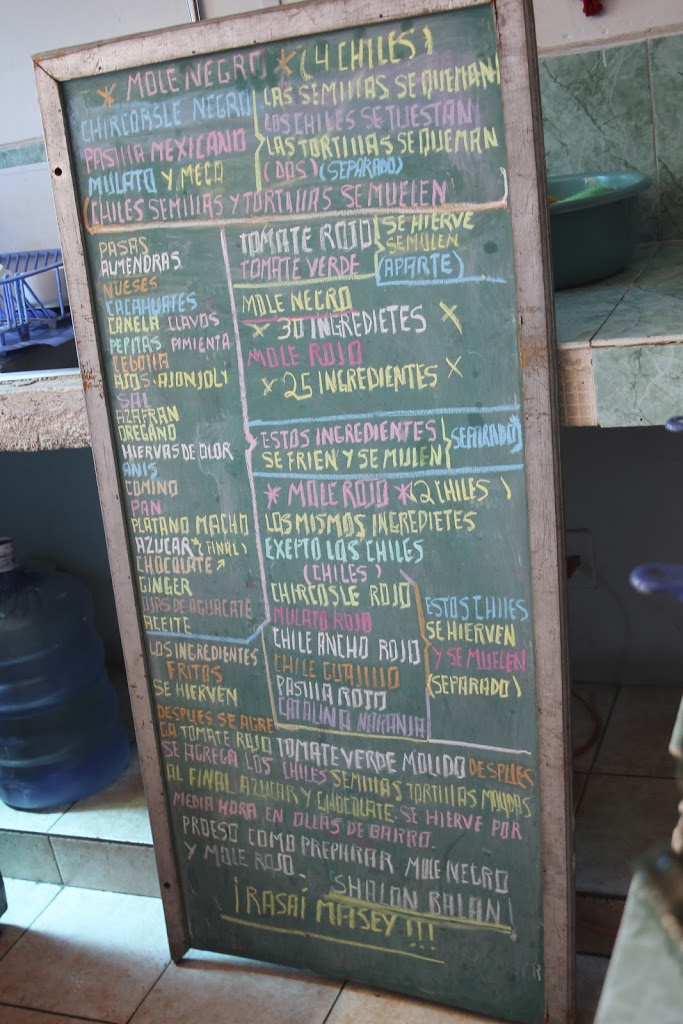 * MOLE NEGRO * (4 CHILES)
CHIRCORSLE NEGRO
PASILLA MEXICANO
MULATO Y MECO
LAS SEMILLAS SE QUEMAN
LOS CHILES SE TUESTAN
LAS TORTILLAS SE QUEMAN
(DOS) (SEPARADO)
(CHILES SEMILLAS Y TORTILLAS SE MUELEN
PASAS
ALMENDRAS
NUESES
CACAHUATES
CANELA CLAVOS
PEPITAS PIMIENTA
CEBOLLA
AJOS. AJONJOLI
SAL
AZAFRAN
OREGANO
HIERVAS DE OLOR
ANIS
COMINO
PAN
PLATANO MACHO
AZUCAR (FINAL)
CHOCOLATE
GINGER
OJAS DE AGUACATE
ACEITE
TOMATE ROJO
TOMATE VERDE
SE HIERVE
SE MULEN
(APARTE)
MOLE NEGRO
* 30 INGREDIETES *
MOLE ROJO
* 25 INGREDIENTES *
ESTOS INGREDIENTES
SE FRIEN Y SE MULEN
SEPARADO)
* MOLE ROJO * (2 CHILES)
LOS MISMOS INGREDIETES
EXEPTO LOS CHILES
(CHILES)
CHIRCOSLE ROJO
MULATO ROJO
CHILE ANCHO ROJO
CHILE GUAJILLO
PASILLA ROJO
CATALINO NARANJA
ESTOS CHILES
SE HIERVEN
Y SE MUELEN
(SEPARADO)
LOS INGREDIENTES
FRITOS
SE HIERVEN
DESPUES SE AGRE
GA TOMATE ROJO TOMATE VERDE MOLIDO DESPUES
SE AGREGA LOS CHILES SEMILLAS TORTILLAS MOLIDAS
AL FINAL AZUCAR Y CHOCOLATE. SE HIERVE POR
MEDIA HORA EN OLLAS DE BARRO.
PROESO COMO PREPARAR MOLE NEGRO
Y MOLE ROJO. SHALON BALAN